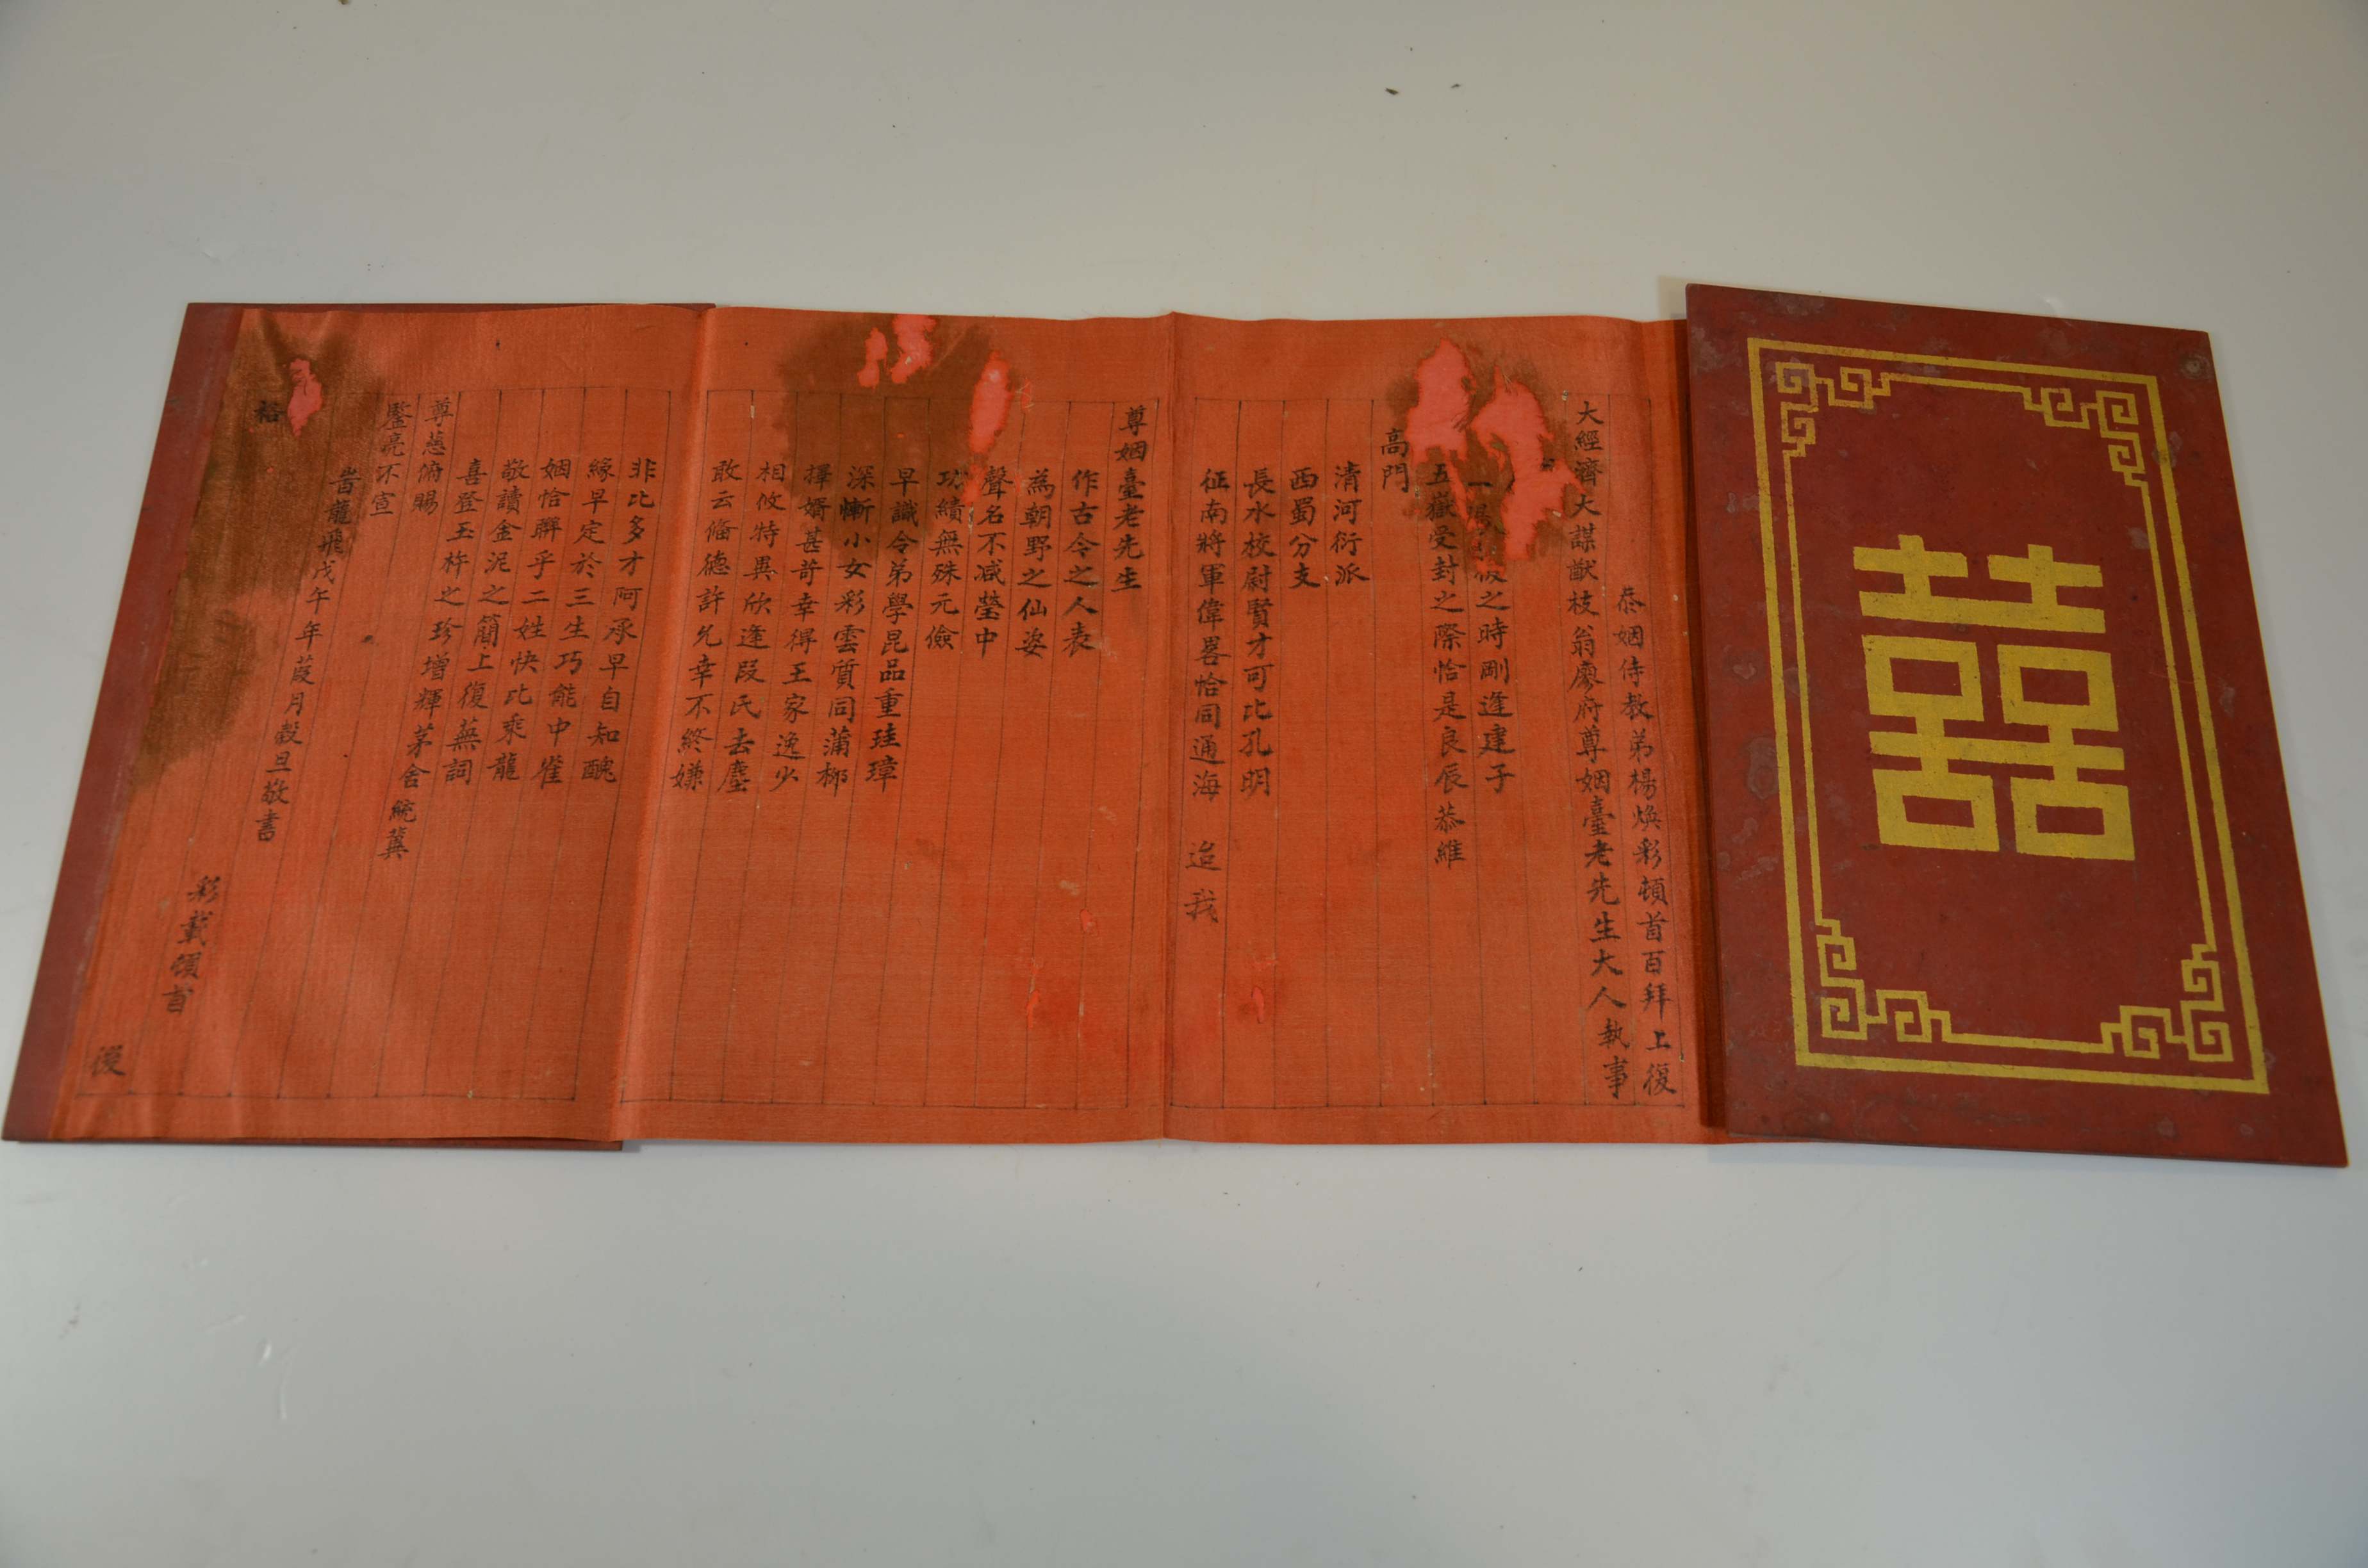 囍
恭姻侍教弟楊煥彩頓首百拜上復
大經濟大謀猷枝翁廖府尊姻臺老先生大人執事
一陽 之時剛逢建子
五嶽受封之際恰是良辰恭維
高門
清河衍派
西蜀分支
長水校尉賢才可比孔明
征南將軍偉畧恰同通海 迨我
尊姻臺老先生
作古今之人表
為朝野之仙姿
聲名不减瑩中
功績無殊元儉
早識令弟學昆品重珪璋
深慚小女彩雲質同蒲柳
擇婿甚苛幸得王家逸少
相攸特異欣逢段氏去塵
敢云備德許允幸不終嫌
非比多才阿承早自知醜
緣早定於三生巧能中雀
姻恰聯乎二姓快比乘龍
敬讀金泥之簡上復蕪詞
喜登玉杵之珍增輝茅舍統冀
尊慈俯賜
鑒亮不宣
旹龍飛戊午年葭月穀旦敬書
裕
彩載頓首
後